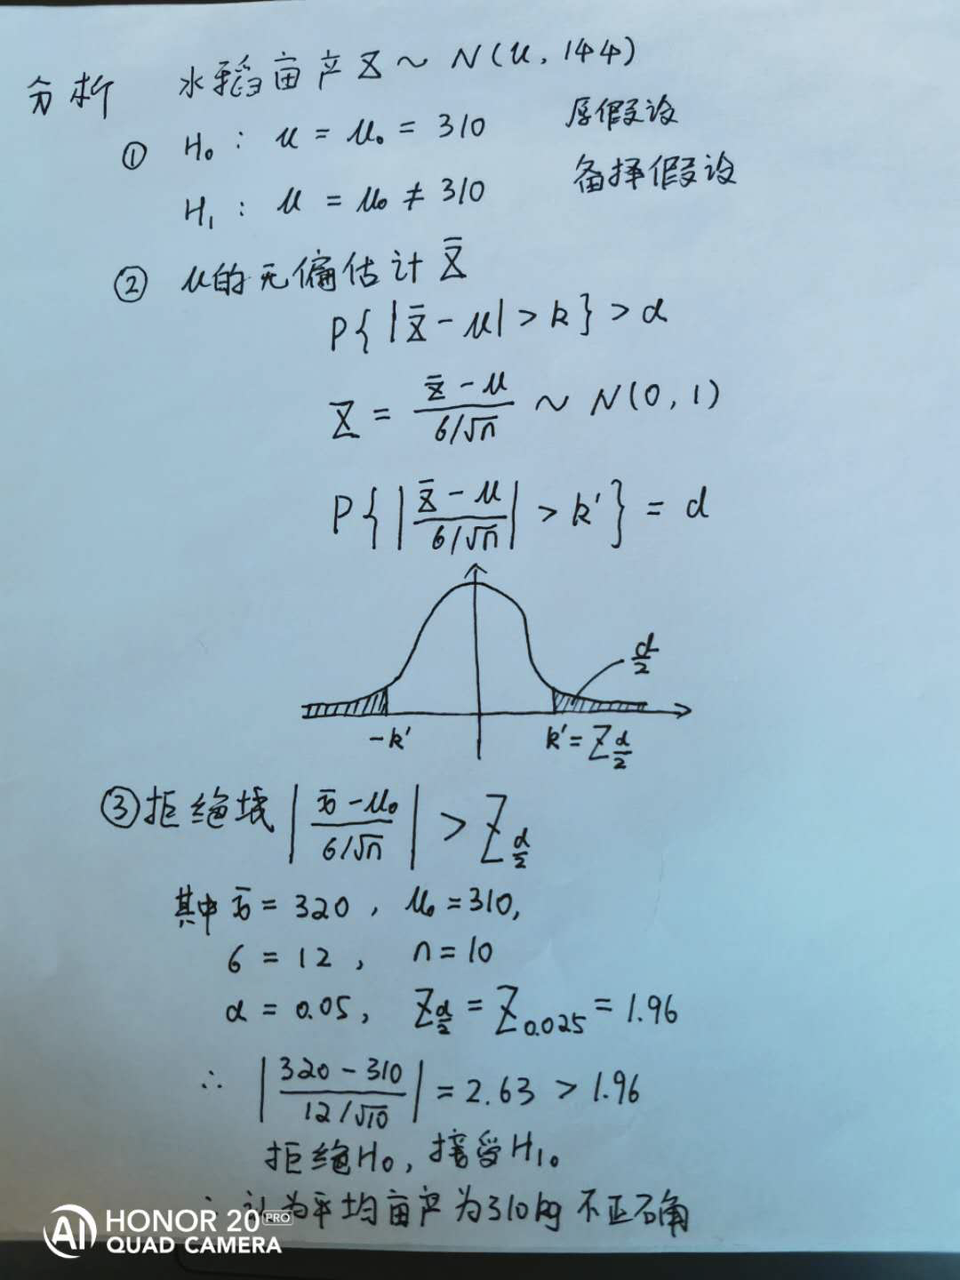 分析 水稻亩产 X ~ N(μ, 144)
① H₀ : μ = μ₀ = 310 原假设
H₁ : μ = μ₀ ≠ 310 备择假设
② μ的无偏估计 X̄
P{ |X̄ - μ| > k } > α
Z = (X̄ - μ)/(σ/√n) ~ N(0, 1)
P{ |(X̄ - μ)/(σ/√n)| > k' } = α
α/2
-k' k' = Z α/2
③ 拒绝域 |(x̄ - μ₀)/(σ/√n)| > Z α/2
其中 x̄ = 320 , μ₀ = 310,
σ = 12 , n = 10
α = 0.05 , Z α/2 = Z 0.025 = 1.96
∴ |(320 - 310)/(12/√10)| = 2.63 > 1.96
拒绝H₀, 接受H₁。
∴ 认为平均亩产为310kg不正确
HONOR 20 PRO
QUAD CAMERA